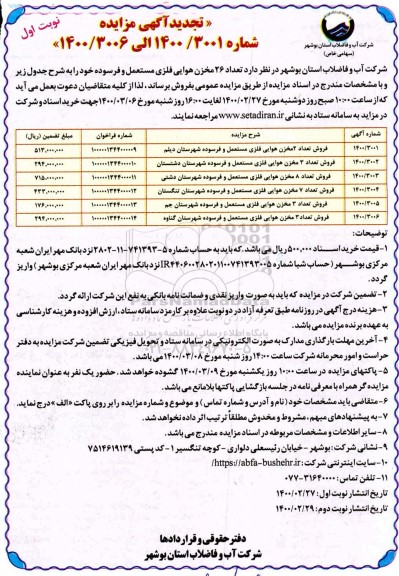 نوبت اول
« تجدیدآگهی مزایده »
شماره ۱۴۰۰/۳۰۰۱ الی ۱۴۰۰/۳۰۰۶
شرکت آب و فاضلاب استان بوشهر
(سهامی خاص)
شرکت آب و فاضلاب استان بوشهر در نظر دارد تعداد ۲۶ مخزن هوایی فلزی مستعمل و فرسوده خود را به شرح جدول زیر
و با مشخصات مندرج در اسناد مزایده از طریق مزایده عمومی بفروش برساند، لذا از کلیه متقاضیان دعوت بعمل می آید
که از ساعت ۱۰:۰۰ صبح روز دوشنبه مورخ ۱۴۰۰/۰۲/۲۷ لغایت ۱۶:۰۰ روز شنبه مورخ ۱۴۰۰/۰۳/۰۶ جهت خرید اسناد و شرکت
در مزاید به سامانه ستاد به نشانی www.setadiran.ir مراجعه نمایند.
شماره آگهی شرح مزایده شماره فراخوان مبلغ تضمین (ریال)
۱۴۰۰/۳۰۰۱ فروش تعداد ۶مخزن هوایی فلزی مستعمل و فرسوده شهرستان دیلم ۱۰۰۰۰۰۱۳۴۴۰۰۰۰۰۹ ۵۱۳,۰۰۰,۰۰۰
۱۴۰۰/۳۰۰۲ فروش تعداد ۳ مخزن هوایی فلزی مستعمل و فرسوده شهرستان دشتستان ۱۰۰۰۰۰۱۳۴۴۰۰۰۰۱۰ ۲۹۴,۰۰۰,۰۰۰
۱۴۰۰/۳۰۰۳ فروش تعداد ۸ مخزن هوایی فلزی مستعمل و فرسوده شهرستان دشتی ۱۰۰۰۰۰۱۳۴۴۰۰۰۰۱۱ ۷۱۵,۰۰۰,۰۰۰
۱۴۰۰/۳۰۰۴ فروش تعداد ۷ مخزن هوایی فلزی مستعمل و فرسوده شهرستان تنگستان ۱۰۰۰۰۰۱۳۴۴۰۰۰۰۱۲ ۴۳۳,۰۰۰,۰۰۰
۱۴۰۰/۳۰۰۵ فروش تعداد ۲ مخزن هوایی فلزی مستعمل و فرسوده شهرستان جم ۱۰۰۰۰۰۱۳۴۴۰۰۰۰۱۳ ۱۷۶,۰۰۰,۰۰۰
۱۴۰۰/۳۰۰۶ فروش تعداد۳ مخزن هوایی فلزی مستعمل و فرسوده شهرستان گناوه ۱۰۰۰۰۰۱۳۴۴۰۰۰۰۱۴ ۲۹۴,۰۰۰,۰۰۰
توضیحات:
۱- قیمت خرید اسناد ۵۰۰,۰۰۰ ریال می باشد. که باید به حساب شماره ۵-۷۴۱۳۹۳-۱۱-۲۸۰۲ نزد بانک مهر ایران شعبه
مرکزی بوشهر ( حساب شبا شماره IR۴۴۰۶۰۰۲۸۰۲۰۱۱۰۰۷۴۱۳۹۳۰۰۵ نزد بانک مهر ایران شعبه مرکزی بوشهر ) واریز
گردد.
۲- تضمین شرکت در مزایده که باید به صورت واریز نقدی و ضمانت نامه بانکی به نفع این شرکت ارائه گردد.
۳- هزینه درج آگهی در روزنامه طبق تعرفه آزاد در دو نوبت علاوه بر کارمزد سامانه ستاد، ارزش افزوده و هزینه کارشناسی
به عهده برنده مزایده می باشد.
۴- آخرین مهلت بارگذاری مدارک به صورت الکترونیکی در سامانه ستاد و تحویل فیزیکی تضمین شرکت مزایده به دفتر
حراست و امور محرمانه شرکت ساعت ۱۴:۰۰ روز شنبه مورخ ۱۴۰۰/۰۳/۰۸ می باشد.
۵- پاکتهای مزایده در ساعت ۱۰:۰۰ روز یکشنبه مورخ ۱۴۰۰/۰۳/۰۹ گشوده خواهد شد. حضور یک نفر به عنوان نماینده
مزایده گر همراه با معرفی نامه در جلسه بازگشایی پاکتها بلامانع می باشد.
۶- متقاضی باید مشخصات خود (نام و آدرس و شماره تماس) و موضوع و شماره مزایده را بر روی پاکت «الف» درج نماید.
۷- به پیشنهادهای مبهم، مشروط و مخدوش مطلقاً ترتیب اثر داده نخواهد شد.
۸- سایر اطلاعات و مشخصات مربوطه در اسناد مزایده مندرج می باشد.
۹- نشانی شرکت: بوشهر - خیابان رئیسعلی دلواری - کوچه تنگسیر ۱ - کد پستی ۷۵۱۴۶۱۹۱۳۹
۱۰- سایت اینترنتی شرکت: https://abfa-bushehr.ir/
۱۱- تلفن تماس: ۳۱۶۴۰۰۰۰-۰۷۷
تاریخ انتشار نوبت اول: ۱۴۰۰/۰۲/۲۷
تاریخ انتشار نوبت دوم: ۱۴۰۰/۰۲/۲۹
دفتر حقوقی و قراردادها
شرکت آب و فاضلاب استان بوشهر